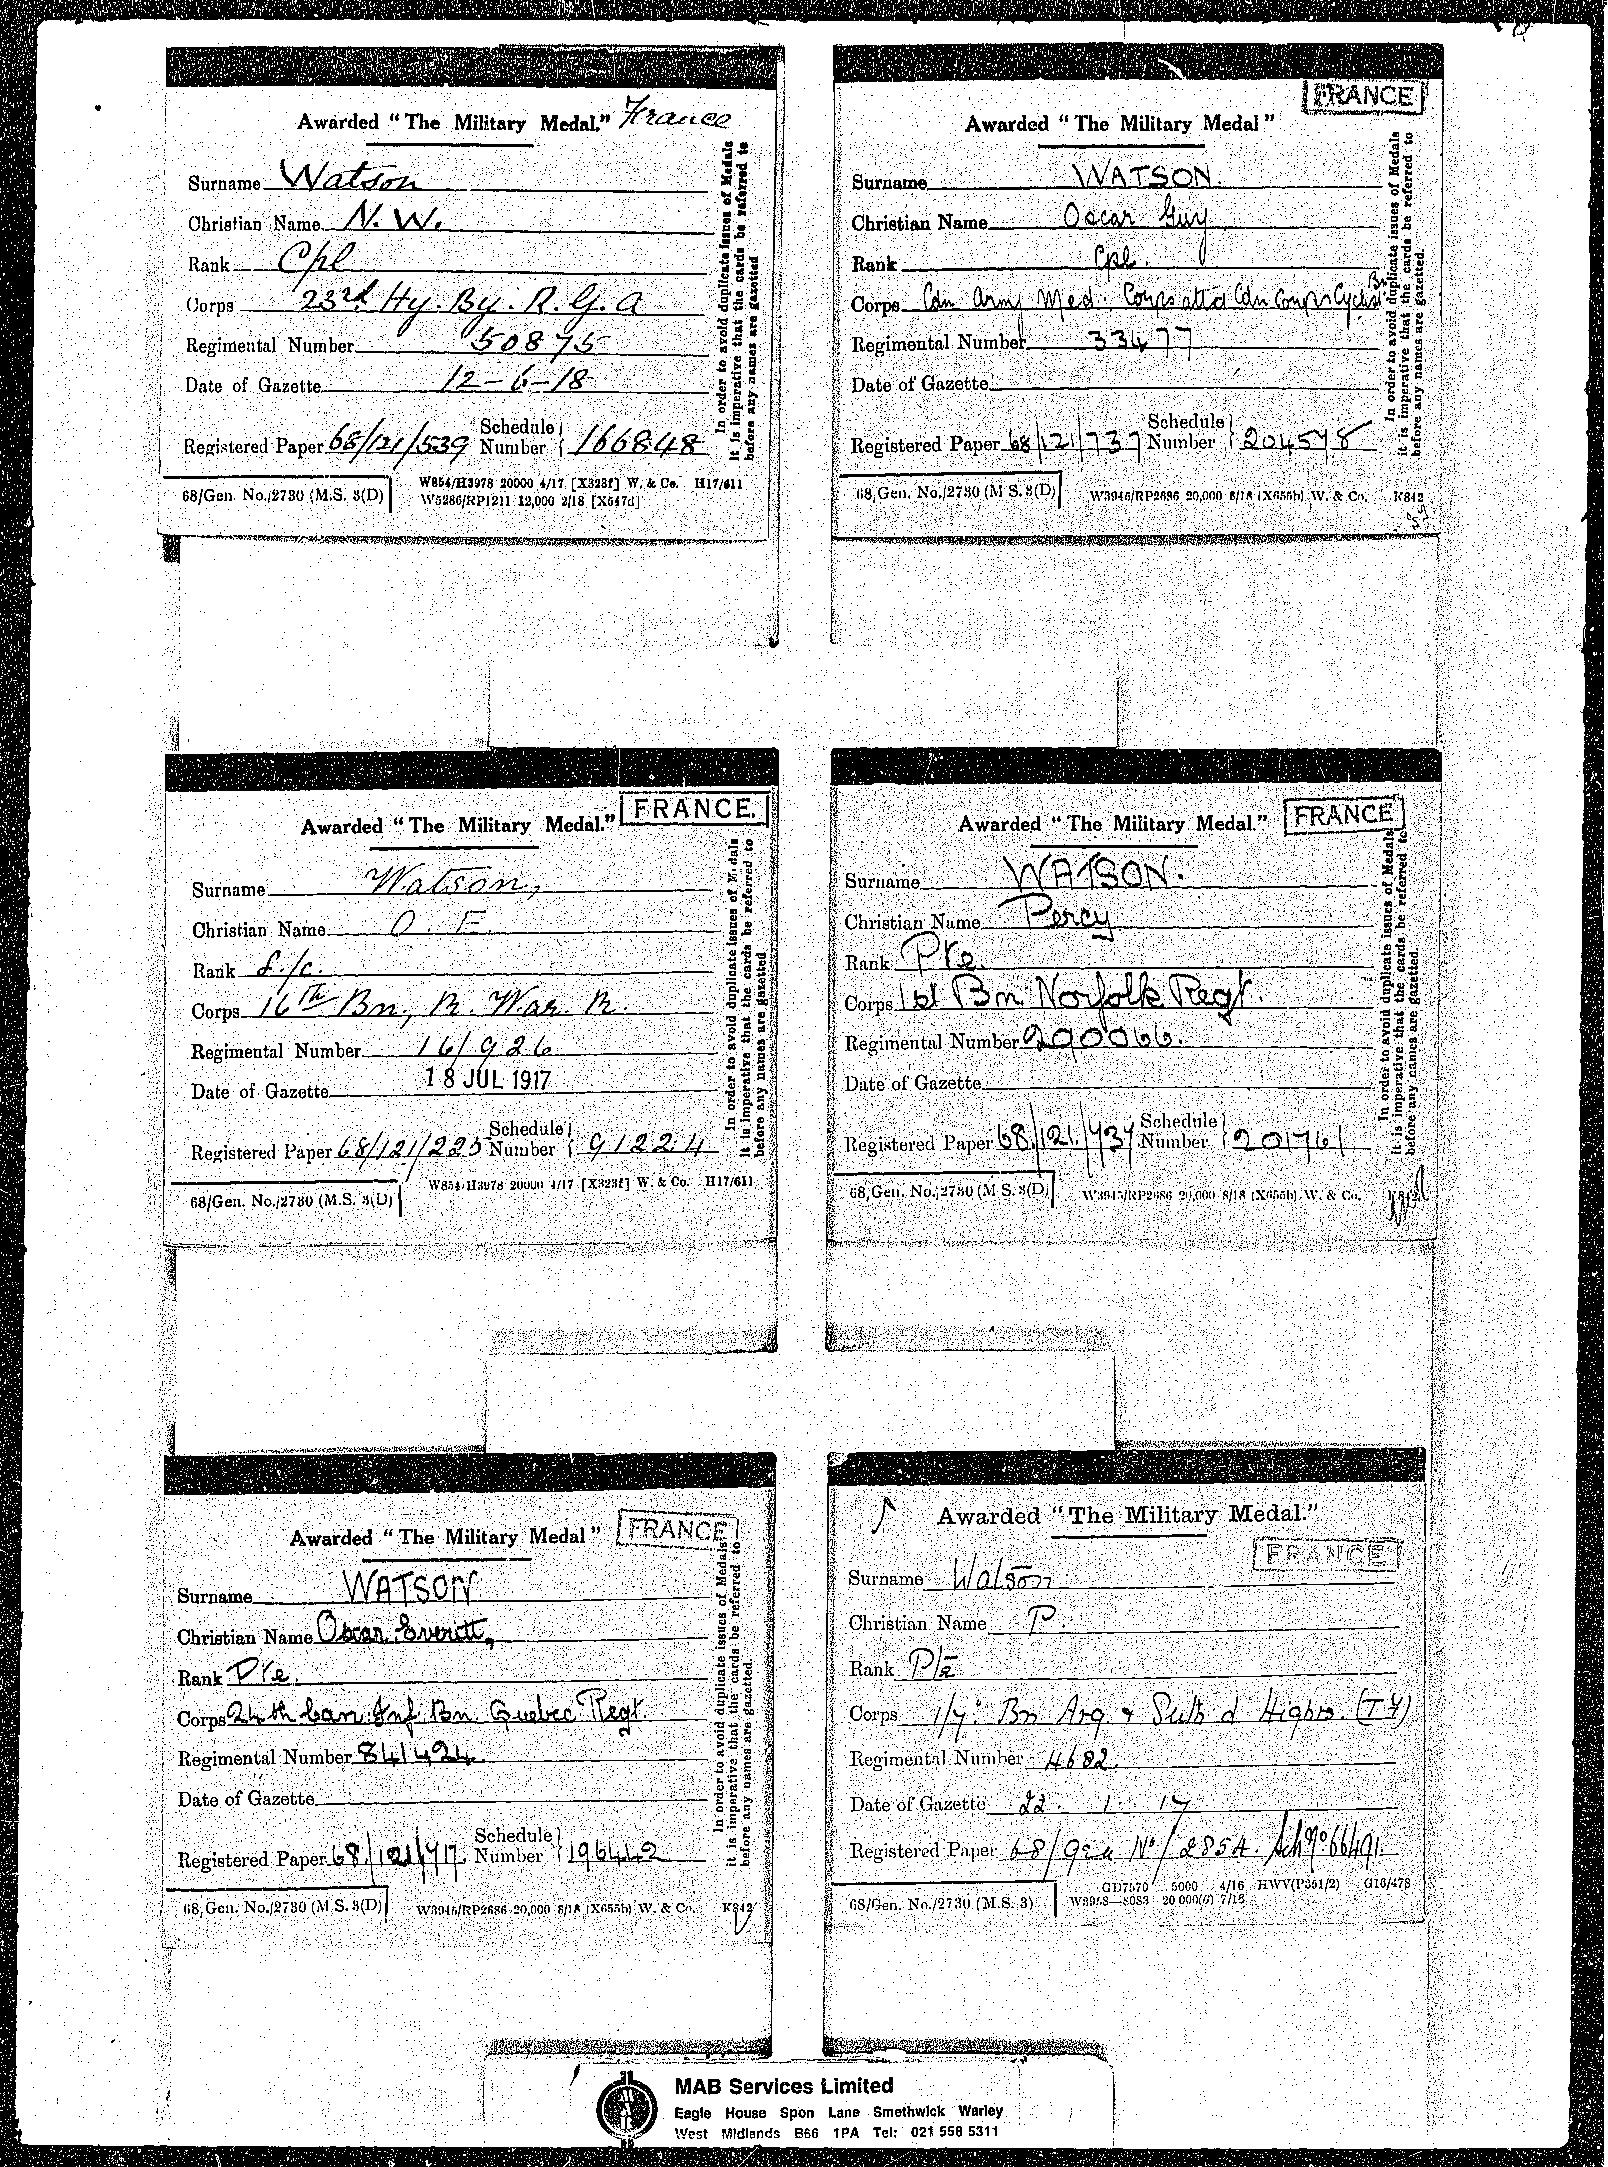 Awarded "The Military Medal." France
Surname Watson
Christian Name N. W.
Rank Cpl
Corps 23rd Hy. By. R. G. A
Regimental Number 50875
Date of Gazette 12-6-18
Registered Paper 68/121/539 Schedule Number 166848
In order to avoid duplicate issues of Medals
it is imperative that the cards be referred to
before any names are gazetted
68/Gen. No./2730 (M.S. 3(D)
W854/H3978 20000 4/17 [X323f] W. & Co. H17/611
W5286/RP1211 12,000 2/18 [X547d]
FRANCE
Awarded "The Military Medal"
Surname WATSON.
Christian Name Oscar Guy
Rank Cpl.
Corps Cdn Army Med. Corps attd Cdn Corps Cyclist Bn
Regimental Number 33477
Date of Gazette
Registered Paper 68/121/737 Schedule Number 204578
In order to avoid duplicate issues of Medals
it is imperative that the cards be referred to
before any names are gazetted.
68/Gen. No./2730 (M.S. 3(D)
W3946/RP2686 20,000 8/18 (X655h) W. & Co. K842
Awarded "The Military Medal." FRANCE.
Surname Watson,
Christian Name O. E.
Rank L./c.
Corps 16th Bn, R. War. R.
Regimental Number 16/926
Date of Gazette 18 JUL 1917
Registered Paper 68/121/225 Schedule Number 91224
In order to avoid duplicate issues of Medals
it is imperative that the cards be referred to
before any names are gazetted
68/Gen. No./2730 (M.S. 3(D)
W854/H3978 20000 4/17 [X323f] W. & Co. H17/611
Awarded "The Military Medal." FRANCE
Surname WATSON.
Christian Name Percy
Rank Pte.
Corps 1st Bn Norfolk Regt.
Regimental Number 290066.
Date of Gazette
Registered Paper 68/121/734 Schedule Number 201761
In order to avoid duplicate issues of Medals
it is imperative that the cards be referred to
before any names are gazetted.
68/Gen. No./2730 (M.S. 3(D)
W3946/RP2686 20,000 8/18 (X655h) W. & Co. K842
Awarded "The Military Medal" FRANCE
Surname WATSON
Christian Name Oscar Everett,
Rank Pte.
Corps 24th Can: Inf. Bn. Quebec Regt.
Regimental Number 841424.
Date of Gazette
Registered Paper 68/121/717 Schedule Number 196442
In order to avoid duplicate issues of Medals
it is imperative that the cards be referred to
before any names are gazetted.
68/Gen. No./2730 (M.S. 3(D)
W3946/RP2686 20,000 8/18 (X655h) W. & Co. K842
Awarded "The Military Medal."
FRANCE
Surname Watson
Christian Name P.
Rank Pte
Corps 1/7: Bn Arg. & Suth d Highrs. (T F)
Regimental Number 4682.
Date of Gazette 22. 1. 17
Registered Paper 68/Gen No/2854. Sch No 66491.
68/Gen. No./2730 (M.S. 3)
GD7570 5000 4/16 HWV(P351/2) G16/478
20 000(6) 7/16
MAB Services Limited
Eagle House Spon Lane Smethwick Warley
West Midlands B66 1PA Tel: 021 558 5311